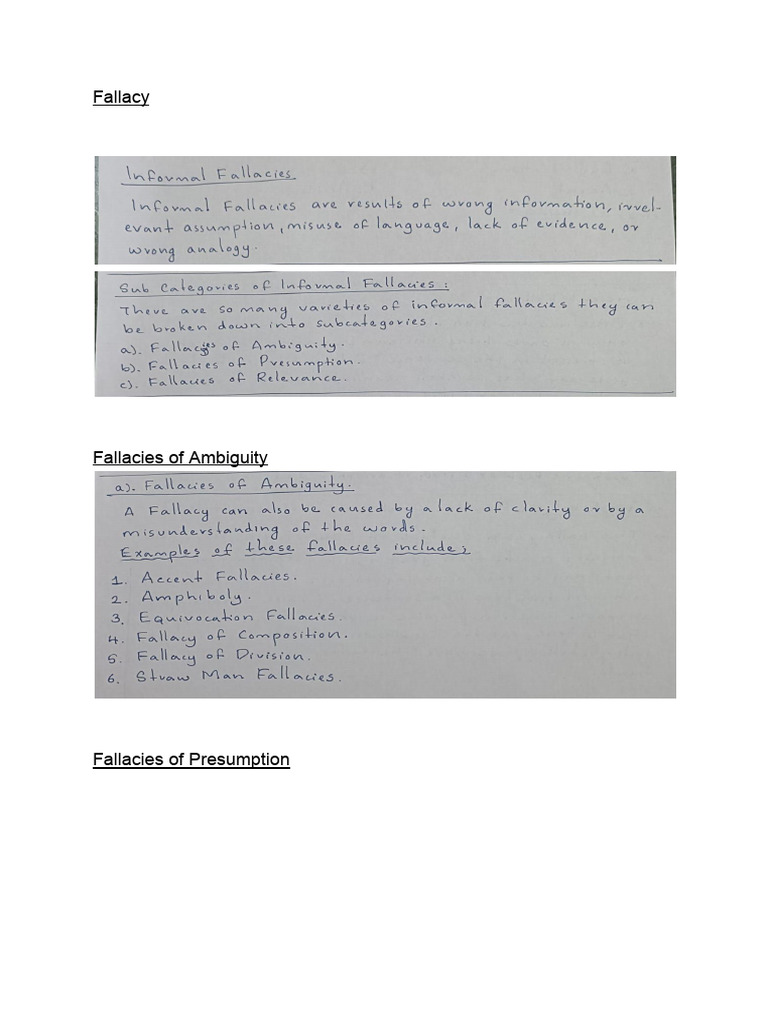 Fallacy
Informal Fallacies.
Informal Fallacies are results of wrong information, irrel-
evant assumption, misuse of language, lack of evidence, or
wrong analogy.
Sub Categories of Informal Fallacies:
There are so many varieties of informal fallacies they can
be broken down into subcategories.
a). Fallacies of Ambiguity.
b). Fallacies of Presumption.
c). Fallacies of Relevance.
Fallacies of Ambiguity
a). Fallacies of Ambiguity.
A Fallacy can also be caused by a lack of clarity or by a
misunderstanding of the words.
Examples of these fallacies include;
1. Accent Fallacies.
2. Amphiboly.
3. Equivocation Fallacies.
4. Fallacy of Composition.
5. Fallacy of Division.
6. Straw Man Fallacies.
Fallacies of Presumption